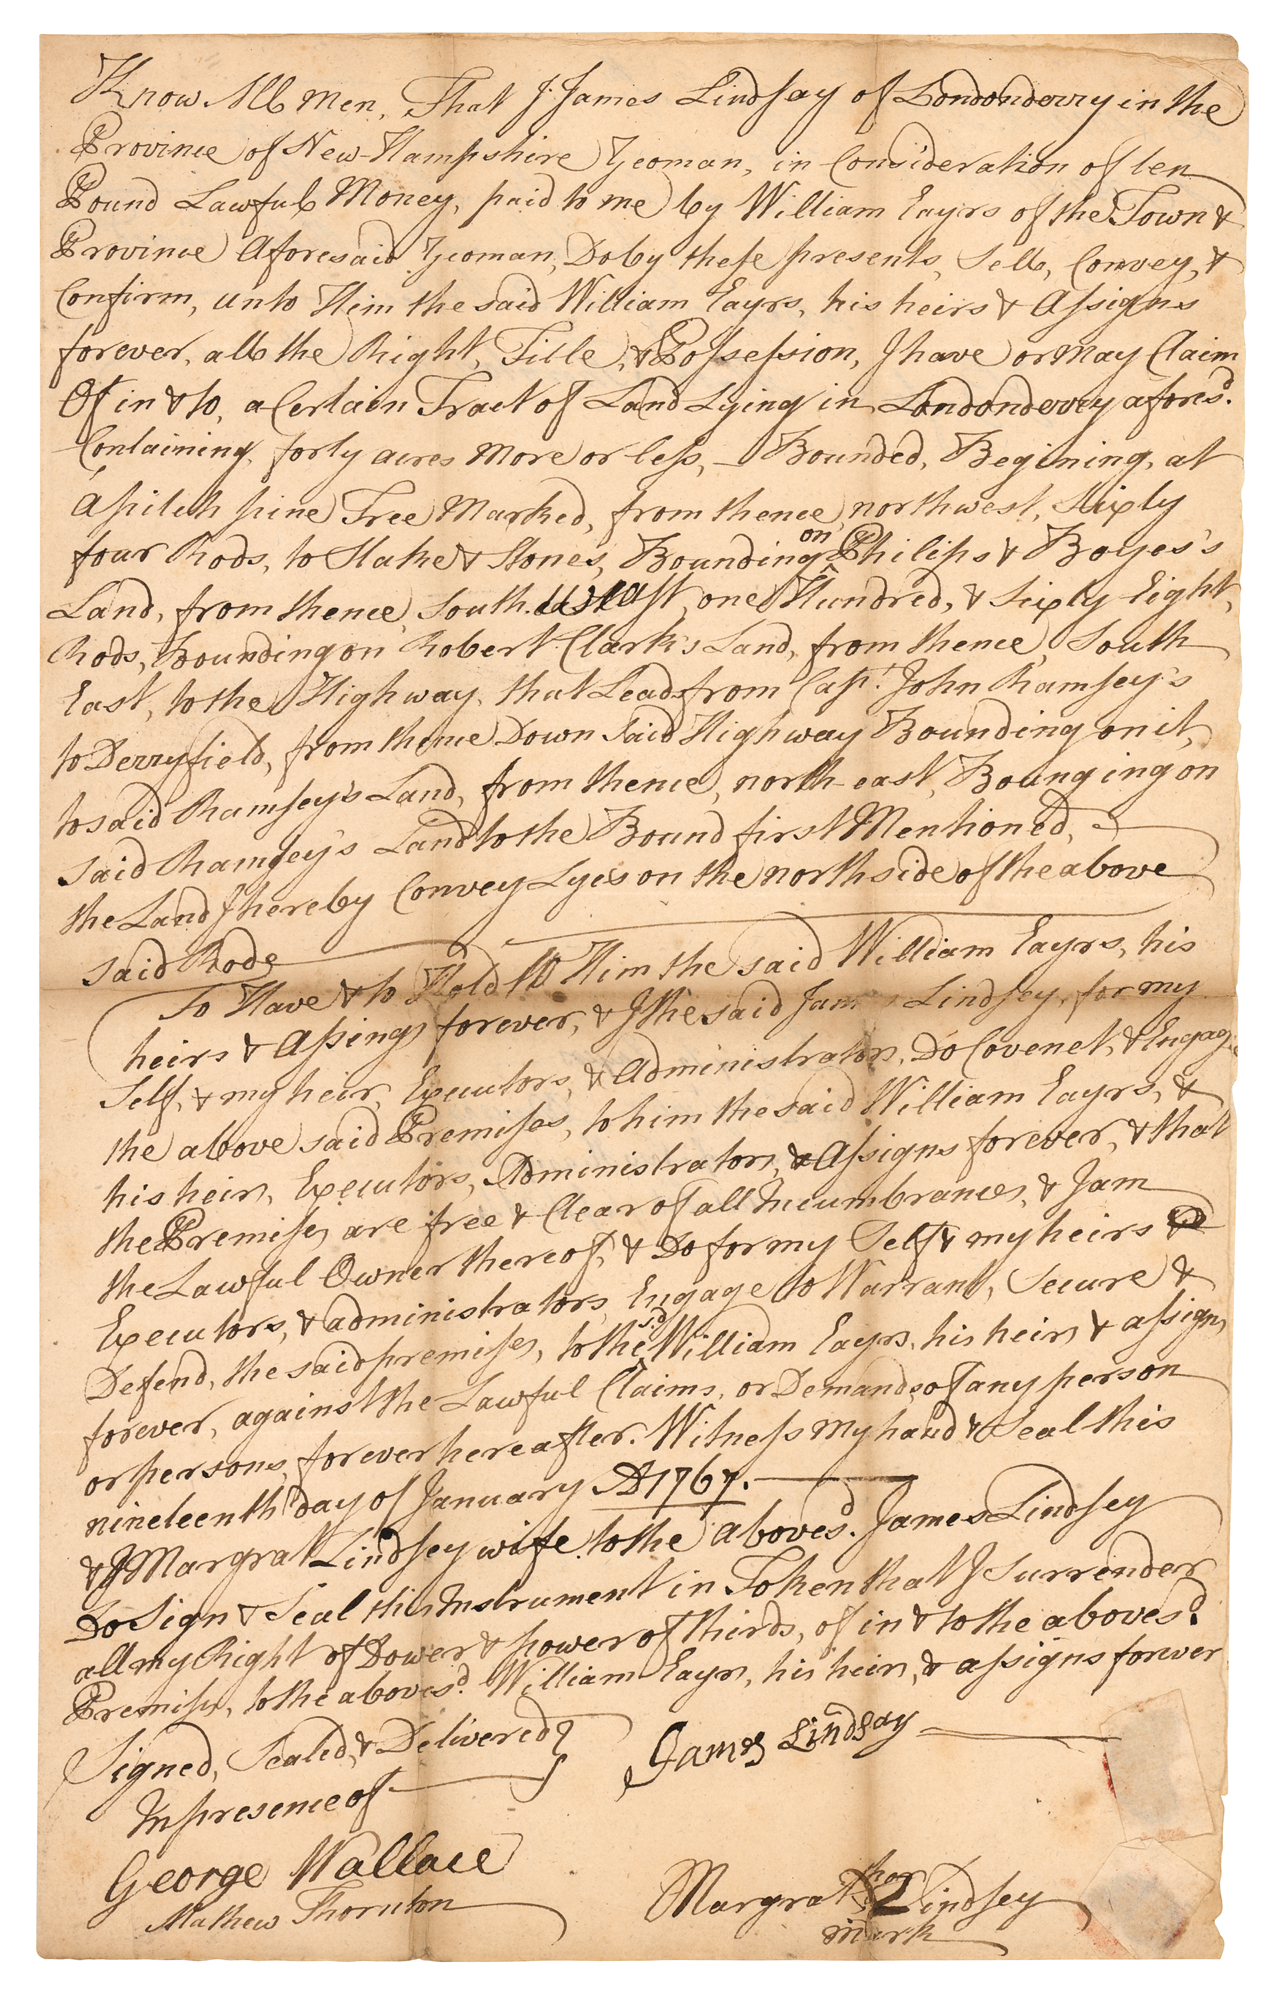 Know All Men, That I James Lindsay of Londonderry in the
Province of New-Hampshire Yeoman, in Consideration of ten
Pound Lawful Money, paid to me by William Eayrs of the Town &
Province Aforesaid Yeoman, Do by these presents, Sell, Convey, &
Confirm, unto Him the said William Eayrs, his heirs & Assigns
forever, all the Right, Title, & Possession, I have or may Claim
Of in & to, a Certain Tract of Land Lying in Londonderry afores.d
Containing, forty acres More or less, — Bounded, Begining, at
a pitch pine Tree Marked, from thence northwest, Sixty
four Rods, to Stake & Stones, Bounding on Philips & Boyes's
Land, from thence, South. West, one Hundred, & Sixty Eight,
Rods, Bounding on Robert Clark's Land, from thence, South
East, to the Highway, that Leads from Capt. John Ramsey's
to Derryfield, from thence Down Said Highway Bounding on it,
to said Ramsey's Land, from thence, north east, Bounging on
said Ramsey's Land to the Bound first Mentioned,
the Land I hereby Convey Lye's on the north side of the above
said Rode
To Have & to Hold to Him the said William Eayrs, his
heirs & Assings forever, & I the said James Lindsey, for my
Self, & my heir, Executors, & Administrators, Do Covenet, & Engage
the above said Premises, to him the said William Eayrs, &
his heirs, Executors, Administrators, & Assigns forever, & that
the Premises are free & Clear of all Incumbrances, & I am
the Lawful Owner thereof, & Do for my Self & my heirs &
Executors, & administrators, Engage to Warrant, Secure &
Defend, the said premises, to the s.d William Eayrs, his heirs & assigns
forever, against the Lawful Claims, or Demands of any person
or persons, forever hereafter. Witness my hand & Seal this
nineteenth day of January AD 1767. —
& I Margrat Lindsey wife to the aboves.d James Lindsey
Do Sign & Seal this Instrument in Token that I Surrender
all my Right of Dower & power of thirds, of in & to the aboves.d
Premises, to the aboves.d William Eayrs, his heirs, & assigns forever
Signed, Sealed, & Delivered
In presence of
James Lindsay
George Wallace
Mathew Thornton
Margrat her Lindsey
mark